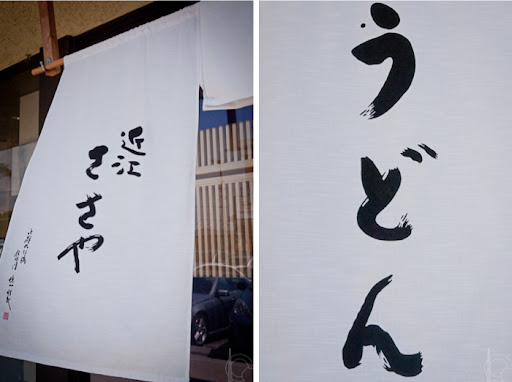 近江
ささや
うどん